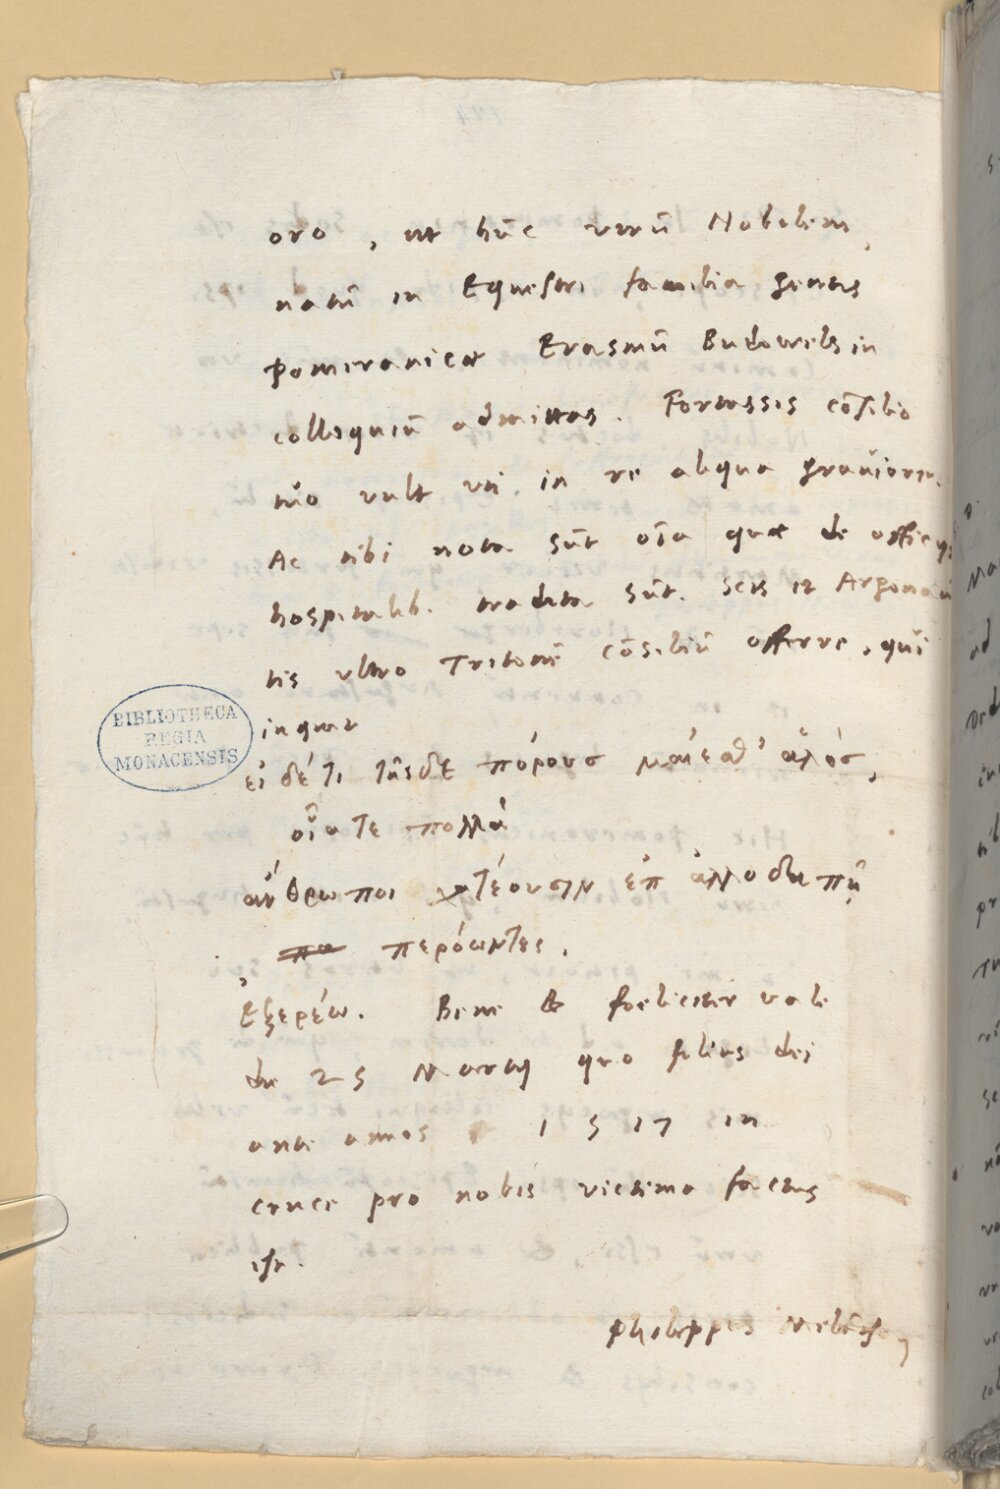 oro, ut hūc virū Nobilem,
natū in Equestri familia gentis
pomeranicae Erasmū Budowels in
colloquiū admittas. Fortassis cōsilio
tuo vult uti in re aliqua graviore.
Ac tibi nota sūt oīa quae de officijs
hospitalib. tradita sūt. Scis et Argonau
tis ultro Tritonē cōsiliū offerre, qui
inquit
BIBLIOTHECA
REGIA
MONACENSIS
εἰ δέ τι τῆσδε πόρους μαίεσθ' ἁλός,
οἷα τε πολλὰ
ἄνθρωποι χατέουσιν ἐπ ἀλλοδαπῇ
περόωντες.
ἐξερέω. Bene & foeliciter vale
die 25 Martij quo filius dei
ante annos 1517 in
cruce pro nobis victima factus
est.
Philippus